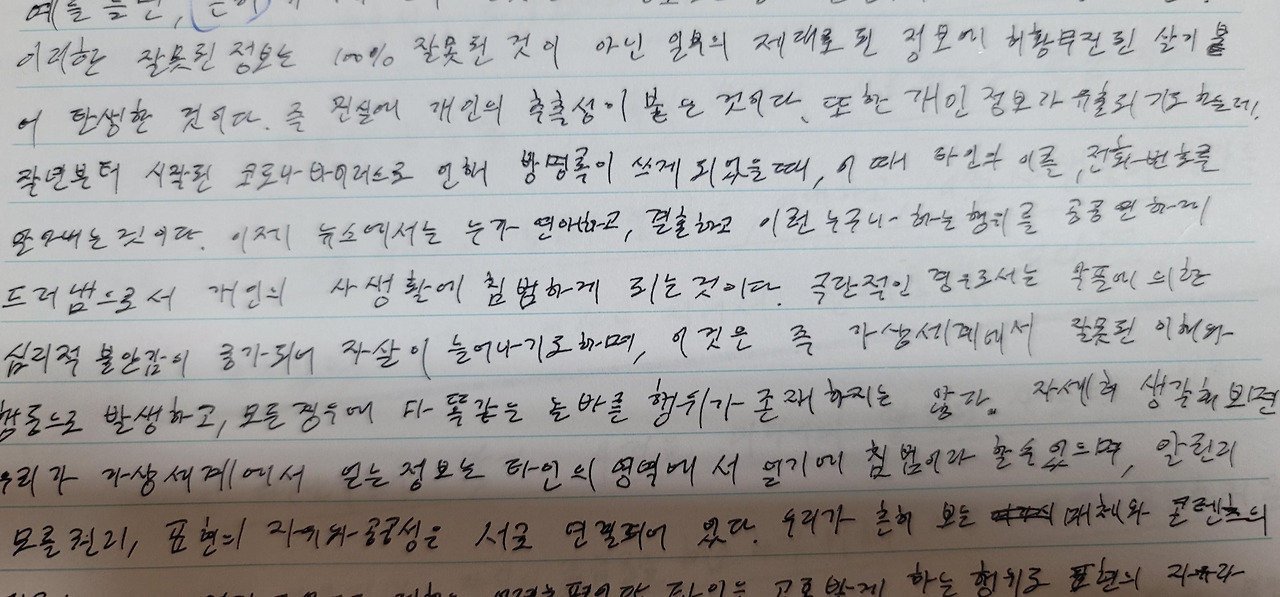 예를 들면, 흔히
이러한 잘못된 정보는 100% 잘못된 것이 아닌 일부의 제대로 된 정보에 허황무전된 살거 붙
어 탄생한 것이다. 즉 진실에 개인의 추측성이 붙는 것이다. 또한 개인정보가 유출되기도 하는데,
작년부터 시작된 코로나-바이러스로 인해 방명록이 쓰게 되었을때, 이 때 타인의 이름, 전화번호를
알아내는 것이다. 이제 뉴스에서는 누가 연애하고, 결혼하고 이런 누구나 하는 행위를 공공연하게
드러냄으로서 개인의 사생활에 침범하게 되는것이다. 극단적인 경우로서는 악플에 의한
심리적 불안감이 증가되어 자살이 늘어나기도하며, 이것은 즉 가상세계에서 잘못된 이해와
행동으로 발생하고, 모든경우에 다 똑같은 올바른 행위가 존재하지는 않다. 자세히 생각해보면
우리가 가상세계에서 얻는정보는 타인의 영역에서 얻기에 침범이라 할수있으며, 알권리
모를권리, 표현의 자유와 공공성은 서로 연결되어 있다. 우리가 흔히 보는 매체와 콘텐츠의
타인는 하는 행위로 표현의 자유라